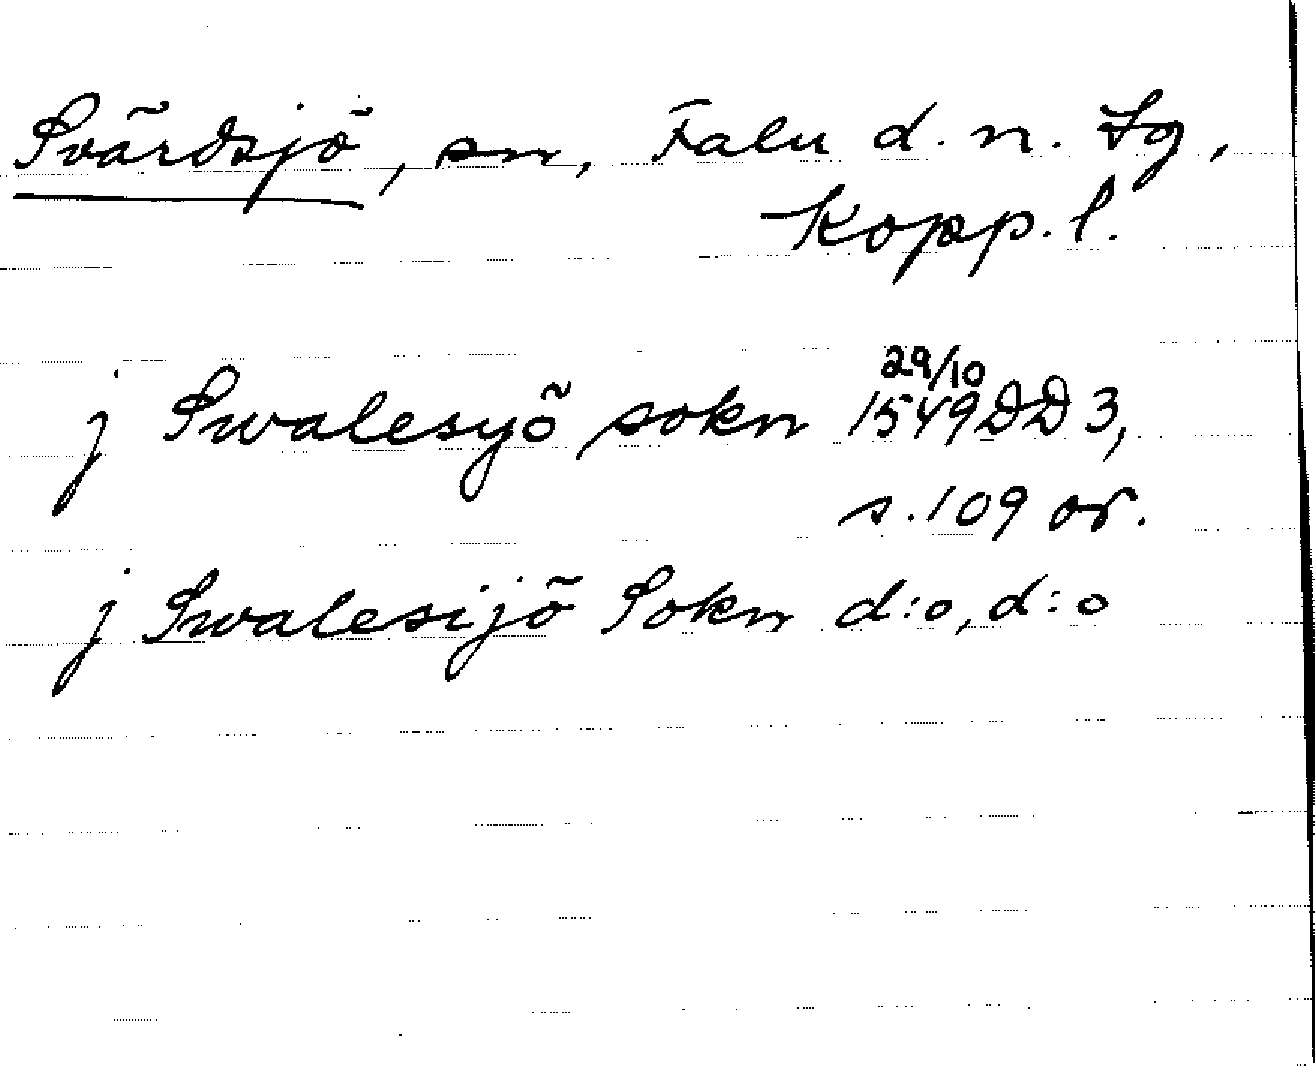 Svärdsjö, sn, Falu d. n. tg,
Kopp. l.
j Swalesyö sokn 29/10 1549 DD 3,
s. 109 or.
j Swalesijö Sokn d:o, d:o